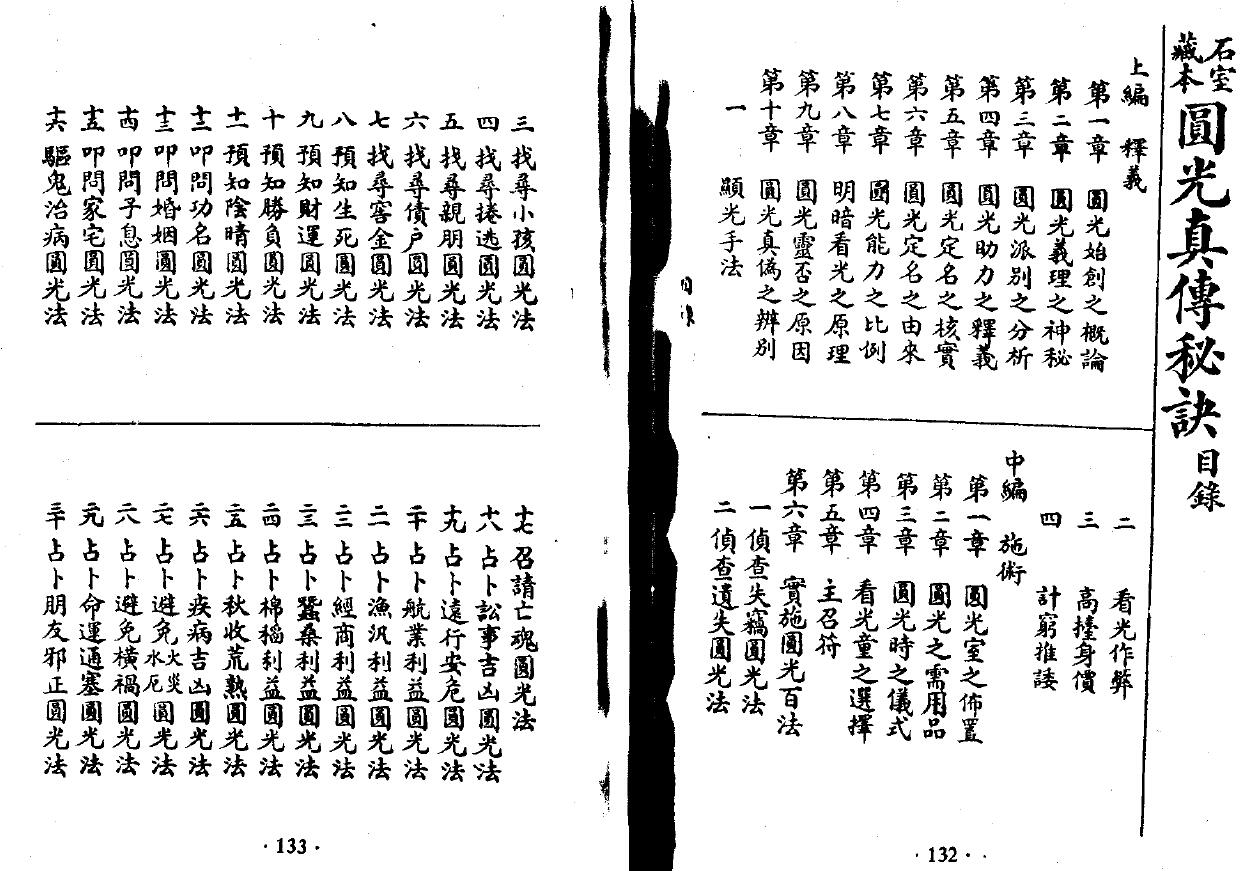 石室藏本圓光真傳秘訣目錄
上編 釋義
第一章 圓光始創之概論
第二章 圓光義理之神秘
第三章 圓光派別之分析
第四章 圓光助力之釋義
第五章 圓光定名之核實
第六章 圓光定名之由來
第七章 圓光能力之比例
第八章 明暗看光之原理
第九章 圓光靈否之原因
第十章 圓光真偽之辨別
一 顯光手法
二 看光作弊
三 高擡身價
四 計窮推諉
中編 施術
第一章 圓光室之佈置
第二章 圓光之需用品
第三章 圓光時之儀式
第四章 看光童之選擇
第五章 主召符
第六章 實施圓光百法
一 偵查失竊圓光法
二 偵查遺失圓光法
·132·
目錄
三 找尋小孩圓光法
四 找尋捲逃圓光法
五 找尋親朋圓光法
六 找尋債户圓光法
七 找尋窖金圓光法
八 預知生死圓光法
九 預知財運圓光法
十 預知勝負圓光法
十一 預知陰晴圓光法
十二 叩問功名圓光法
十三 叩問婚姻圓光法
十四 叩問子息圓光法
十五 叩問家宅圓光法
十六 驅鬼治病圓光法
十七 召請亡魂圓光法
十八 占卜訟事吉凶圓光法
十九 占卜遠行安危圓光法
二十 占卜航業利益圓光法
二一 占卜漁汎利益圓光法
二二 占卜經商利益圓光法
二三 占卜蠶桑利益圓光法
二四 占卜棉稻利益圓光法
二五 占卜秋收荒熟圓光法
二六 占卜疾病吉凶圓光法
二七 占卜避免火災水厄圓光法
二八 占卜避免橫禍圓光法
二九 占卜命運通塞圓光法
三十 占卜朋友邪正圓光法
·133·